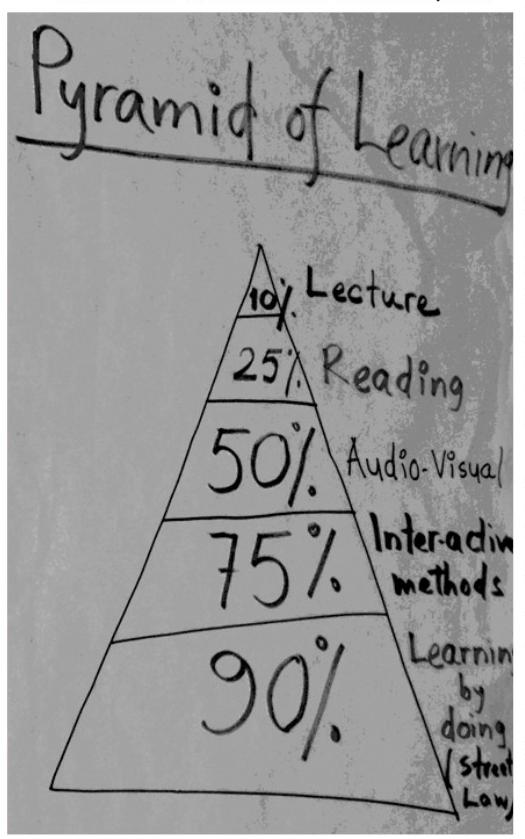 Pyramid of Learning
10% Lecture
25% Reading
50% Audio-Visual
75% Inter-active
methods
90% Learnin
by
doing
(Street
Law)